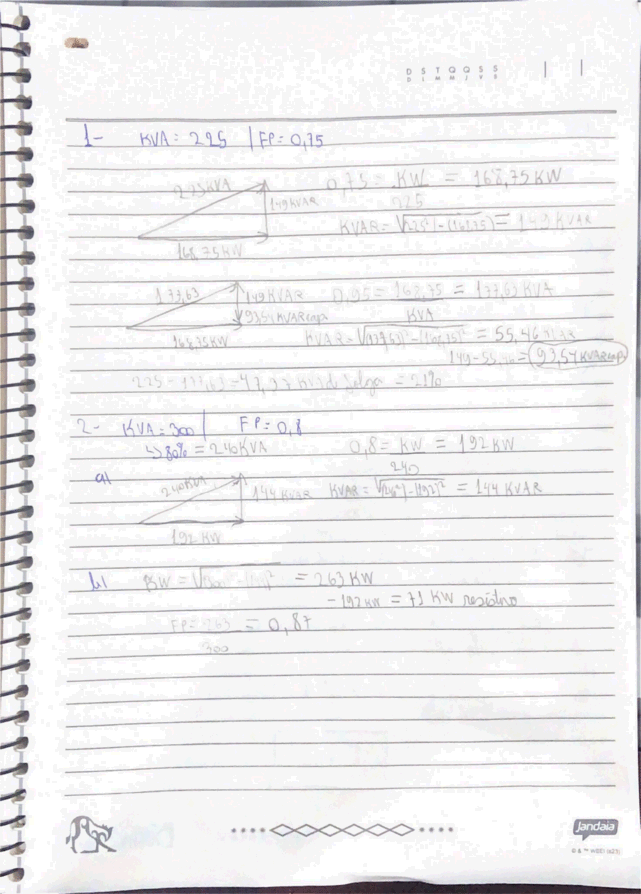 D S T Q Q S S
D L M M J V S
1- KVA = 225 / FP = 0,75
225KVA
149KVAR
168,75KW
0,75 = KW = 168,75 KW
225
KVAR = = 149 KVAR
177,63
149KVAR
93,54KVARcap
168,75KW
0,95 = 168,75 = 177,63 KVA
KVA
KVAR = = 55,46 KVAR
149-55,46 = 93,54 KVARcap
225 - 177,63 = 47,37 KVA de folga = 21%
2- KVA = 300 / FP = 0,8
↳ 80% = 240KVA
0,8 = KW = 192 KW
240
a)
240KVA
144 KVAR
192 KW
KVAR = √(240²)-(192)² = 144 KVAR
b)
KW = = 263 KW
- 192 KW = 71 KW resistivo
FP = 263 = 0,87
300
Jandaia